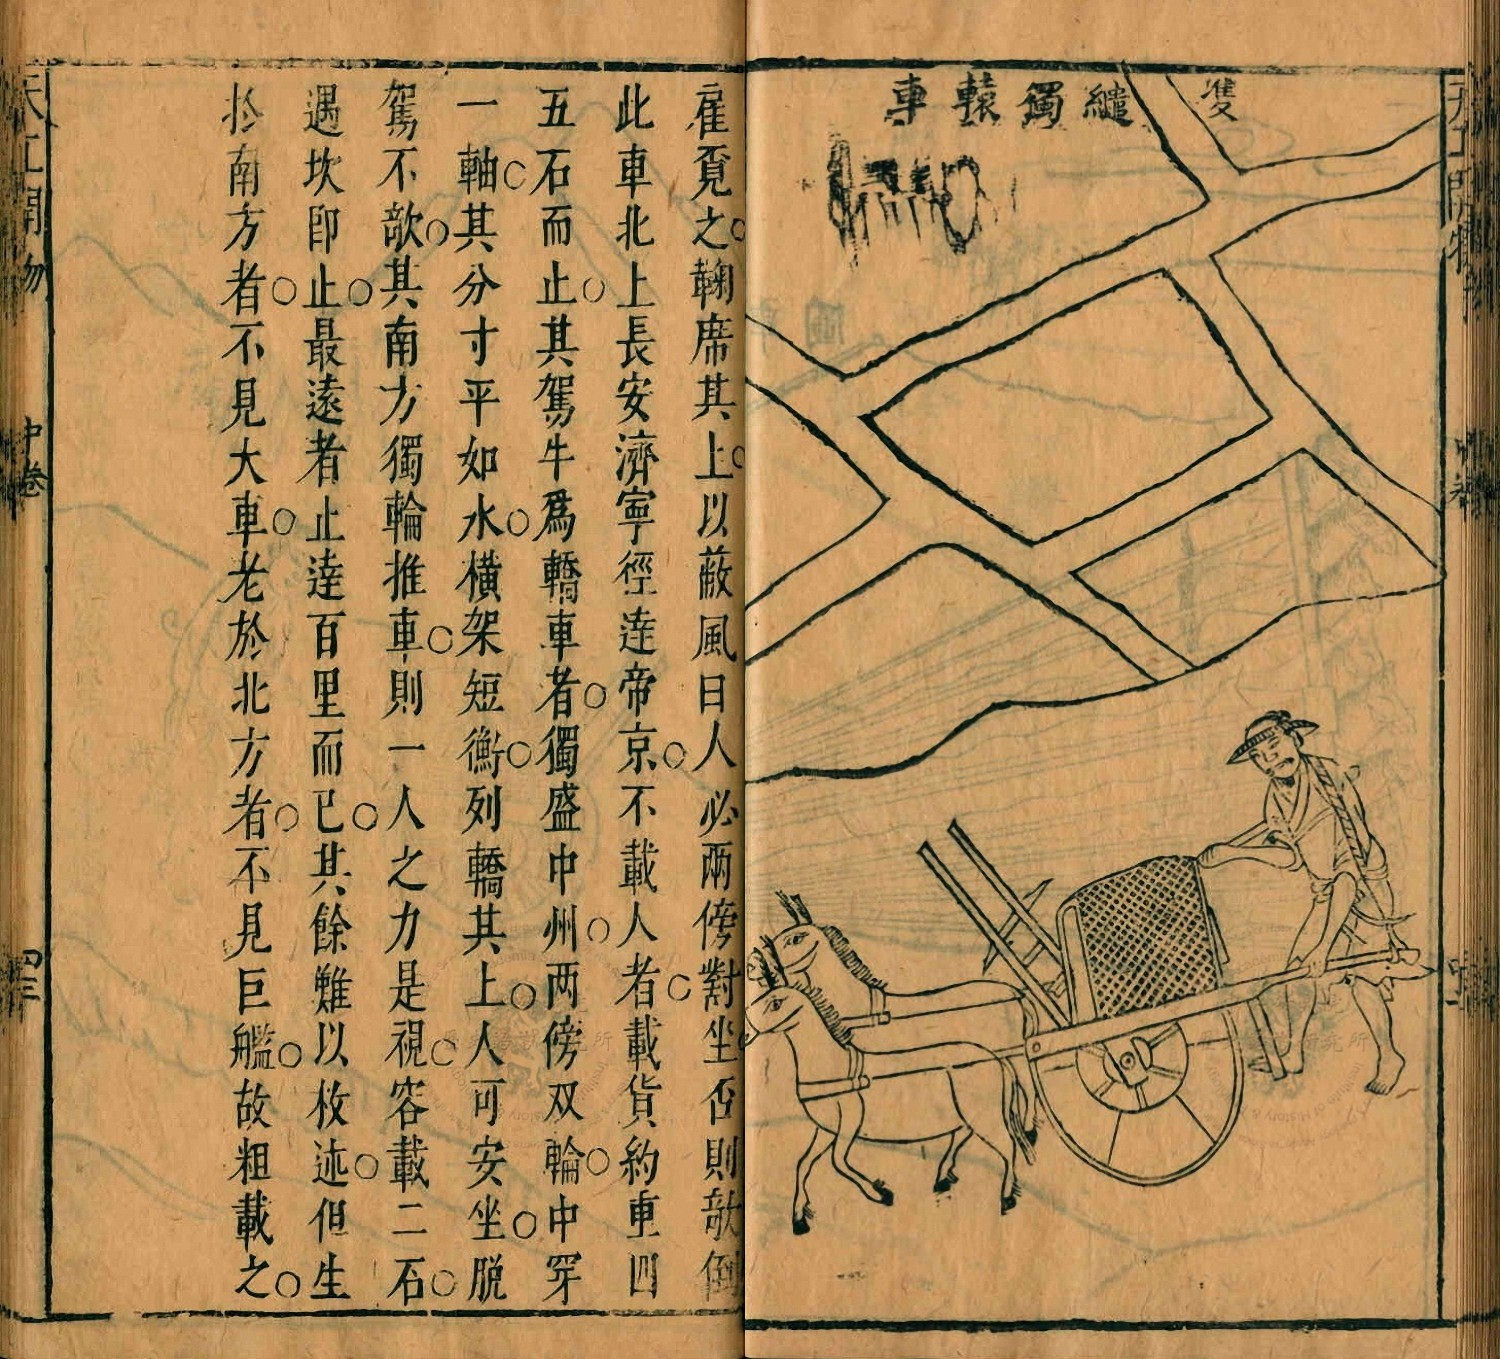 雙
繾獨轅車
雇覔之鞠席其上以蔽風日人必兩傍對坐否則欹倒
此車北上長安濟寧徑逹帝京不載人者載貨約重四
五石而止其駕牛爲轎車者獨盛中州两傍双輪中穿
一軸其分寸平如水橫架短衡列轎其上人可安坐脱
駕不欹其南方獨輪推車則一人之力是視容載二石
遇坎即止最遠者止逹百里而已其餘難以枚述但生
於南方者不見大車老於北方者不見巨艦故粗載之
天工開物
中卷
四三